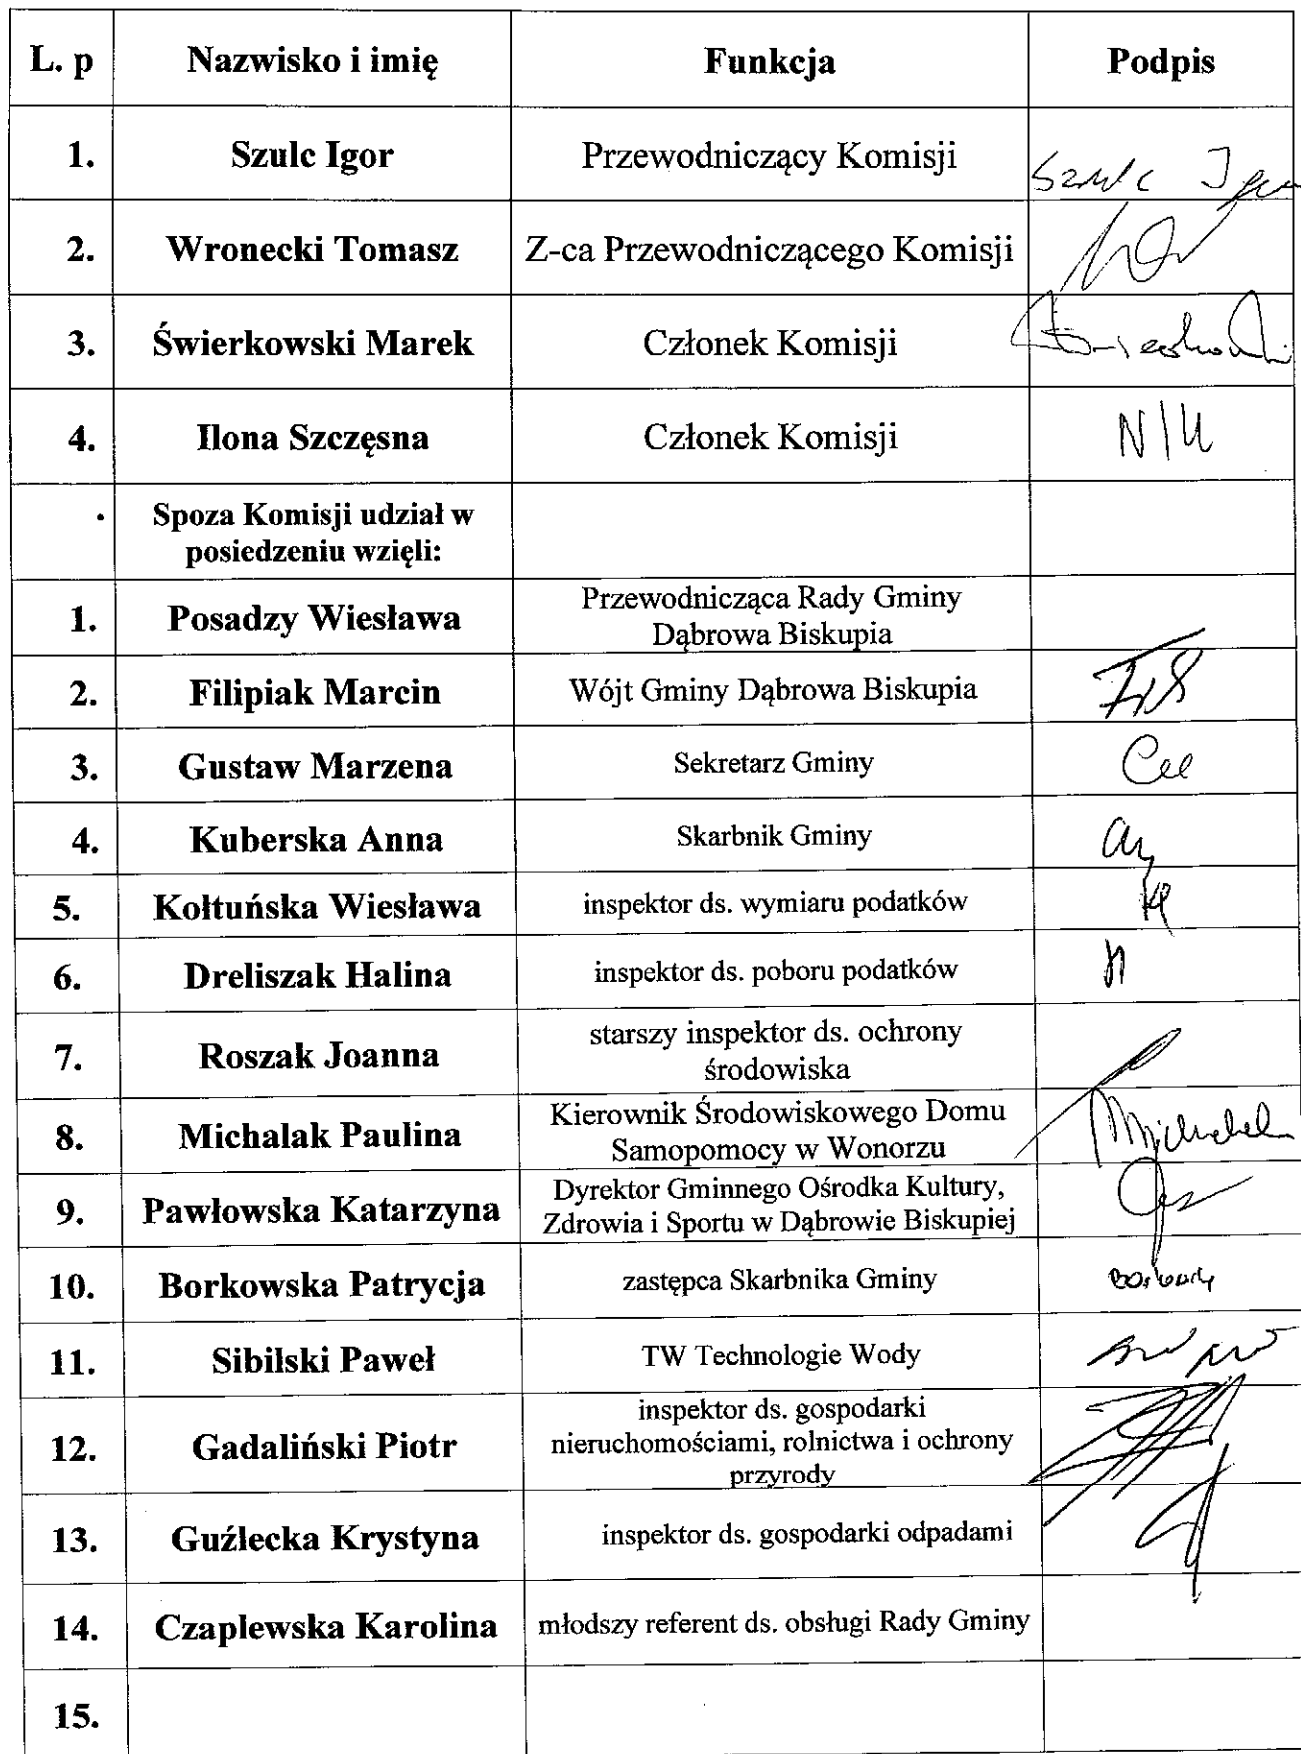 L. p Nazwisko i imię Funkcja Podpis
1. Szulc Igor Przewodniczący Komisji Szulc Igor
2. Wronecki Tomasz Z-ca Przewodniczącego Komisji
3. Świerkowski Marek Członek Komisji
4. Ilona Szczęsna Członek Komisji N/U
Spoza Komisji udział w
posiedzeniu wzięli:
1. Posadzy Wiesława Przewodnicząca Rady Gminy
Dąbrowa Biskupia
2. Filipiak Marcin Wójt Gminy Dąbrowa Biskupia
3. Gustaw Marzena Sekretarz Gminy
4. Kuberska Anna Skarbnik Gminy
5. Kołtuńska Wiesława inspektor ds. wymiaru podatków
6. Dreliszak Halina inspektor ds. poboru podatków
7. Roszak Joanna starszy inspektor ds. ochrony
środowiska
8. Michalak Paulina Kierownik Środowiskowego Domu
Samopomocy w Wonorzu
9. Pawłowska Katarzyna Dyrektor Gminnego Ośrodka Kultury,
Zdrowia i Sportu w Dąbrowie Biskupiej
10. Borkowska Patrycja zastępca Skarbnika Gminy
11. Sibilski Paweł TW Technologie Wody
12. Gadaliński Piotr inspektor ds. gospodarki
nieruchomościami, rolnictwa i ochrony
przyrody
13. Guźlecka Krystyna inspektor ds. gospodarki odpadami
14. Czaplewska Karolina młodszy referent ds. obsługi Rady Gminy
15.